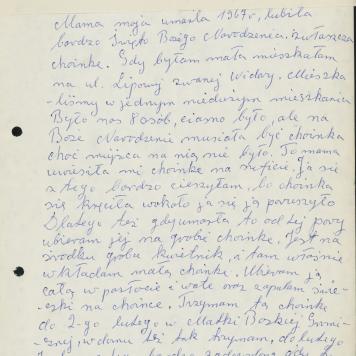 Mama moja umarła 1967 r, lubiła
bardzo Święto Bożego Narodzenia, zwłaszcza
choinkę. Gdy byłam mała mieszkałam
na ul. Lipowej zwanej Widay. Mieszka
-liśmy w jednym niedużym mieszkaniu
Było nas 8 osób, ciasno było, ale na
Boże Narodzenie musiała być choinka
choć miejsca na nią nie było. To mama
uwiesiła mi choinkę na suficie, ja się
z tego bardzo cieszyłam, bo choinka
się kręciła wokoło ja się ją poruszyło
Dlatego też gdy umarła to od tej pory
ubieram jej na grobie choinkę. Jest na
środku grobu kwietnik, i tam właśnie
wkładam małą choinkę. Ubieram ją
całą w pozłocie i watę oraz zapalam świe-
-czki na choince. Trzymam tą choinkę
do 2-go lutego w Matki Boskiej Grom-
-cznej, w domu też tak trzymam, do lutego
bardzo